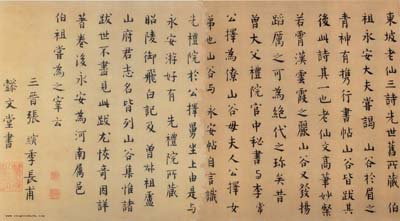 東坡老仙三詩先世舊所藏伯
祖永安大夫嘗謁山谷於眉之
青神有攜行書帖山谷皆跋其
後此詩其一也老仙文高筆妙粲
若霄漢雲霞之麗山谷又發揚
蹈厲之可為絕代之珍矣昔
曾大父禮院官中秘書與李常
公擇為僚山谷母夫人公擇女
弟也山谷與永安帖自言識
先禮院於公擇舅坐上由是與
永安游好有先禮院所藏
昭陵御飛白記及曾叔祖盧
山府君志名皆列山谷集惟諸
跋世不盡見此跋尤恢奇因詳
著卷後永安為河南屬邑
伯祖嘗為之宰云
三晉張縯季長甫
懿文堂書